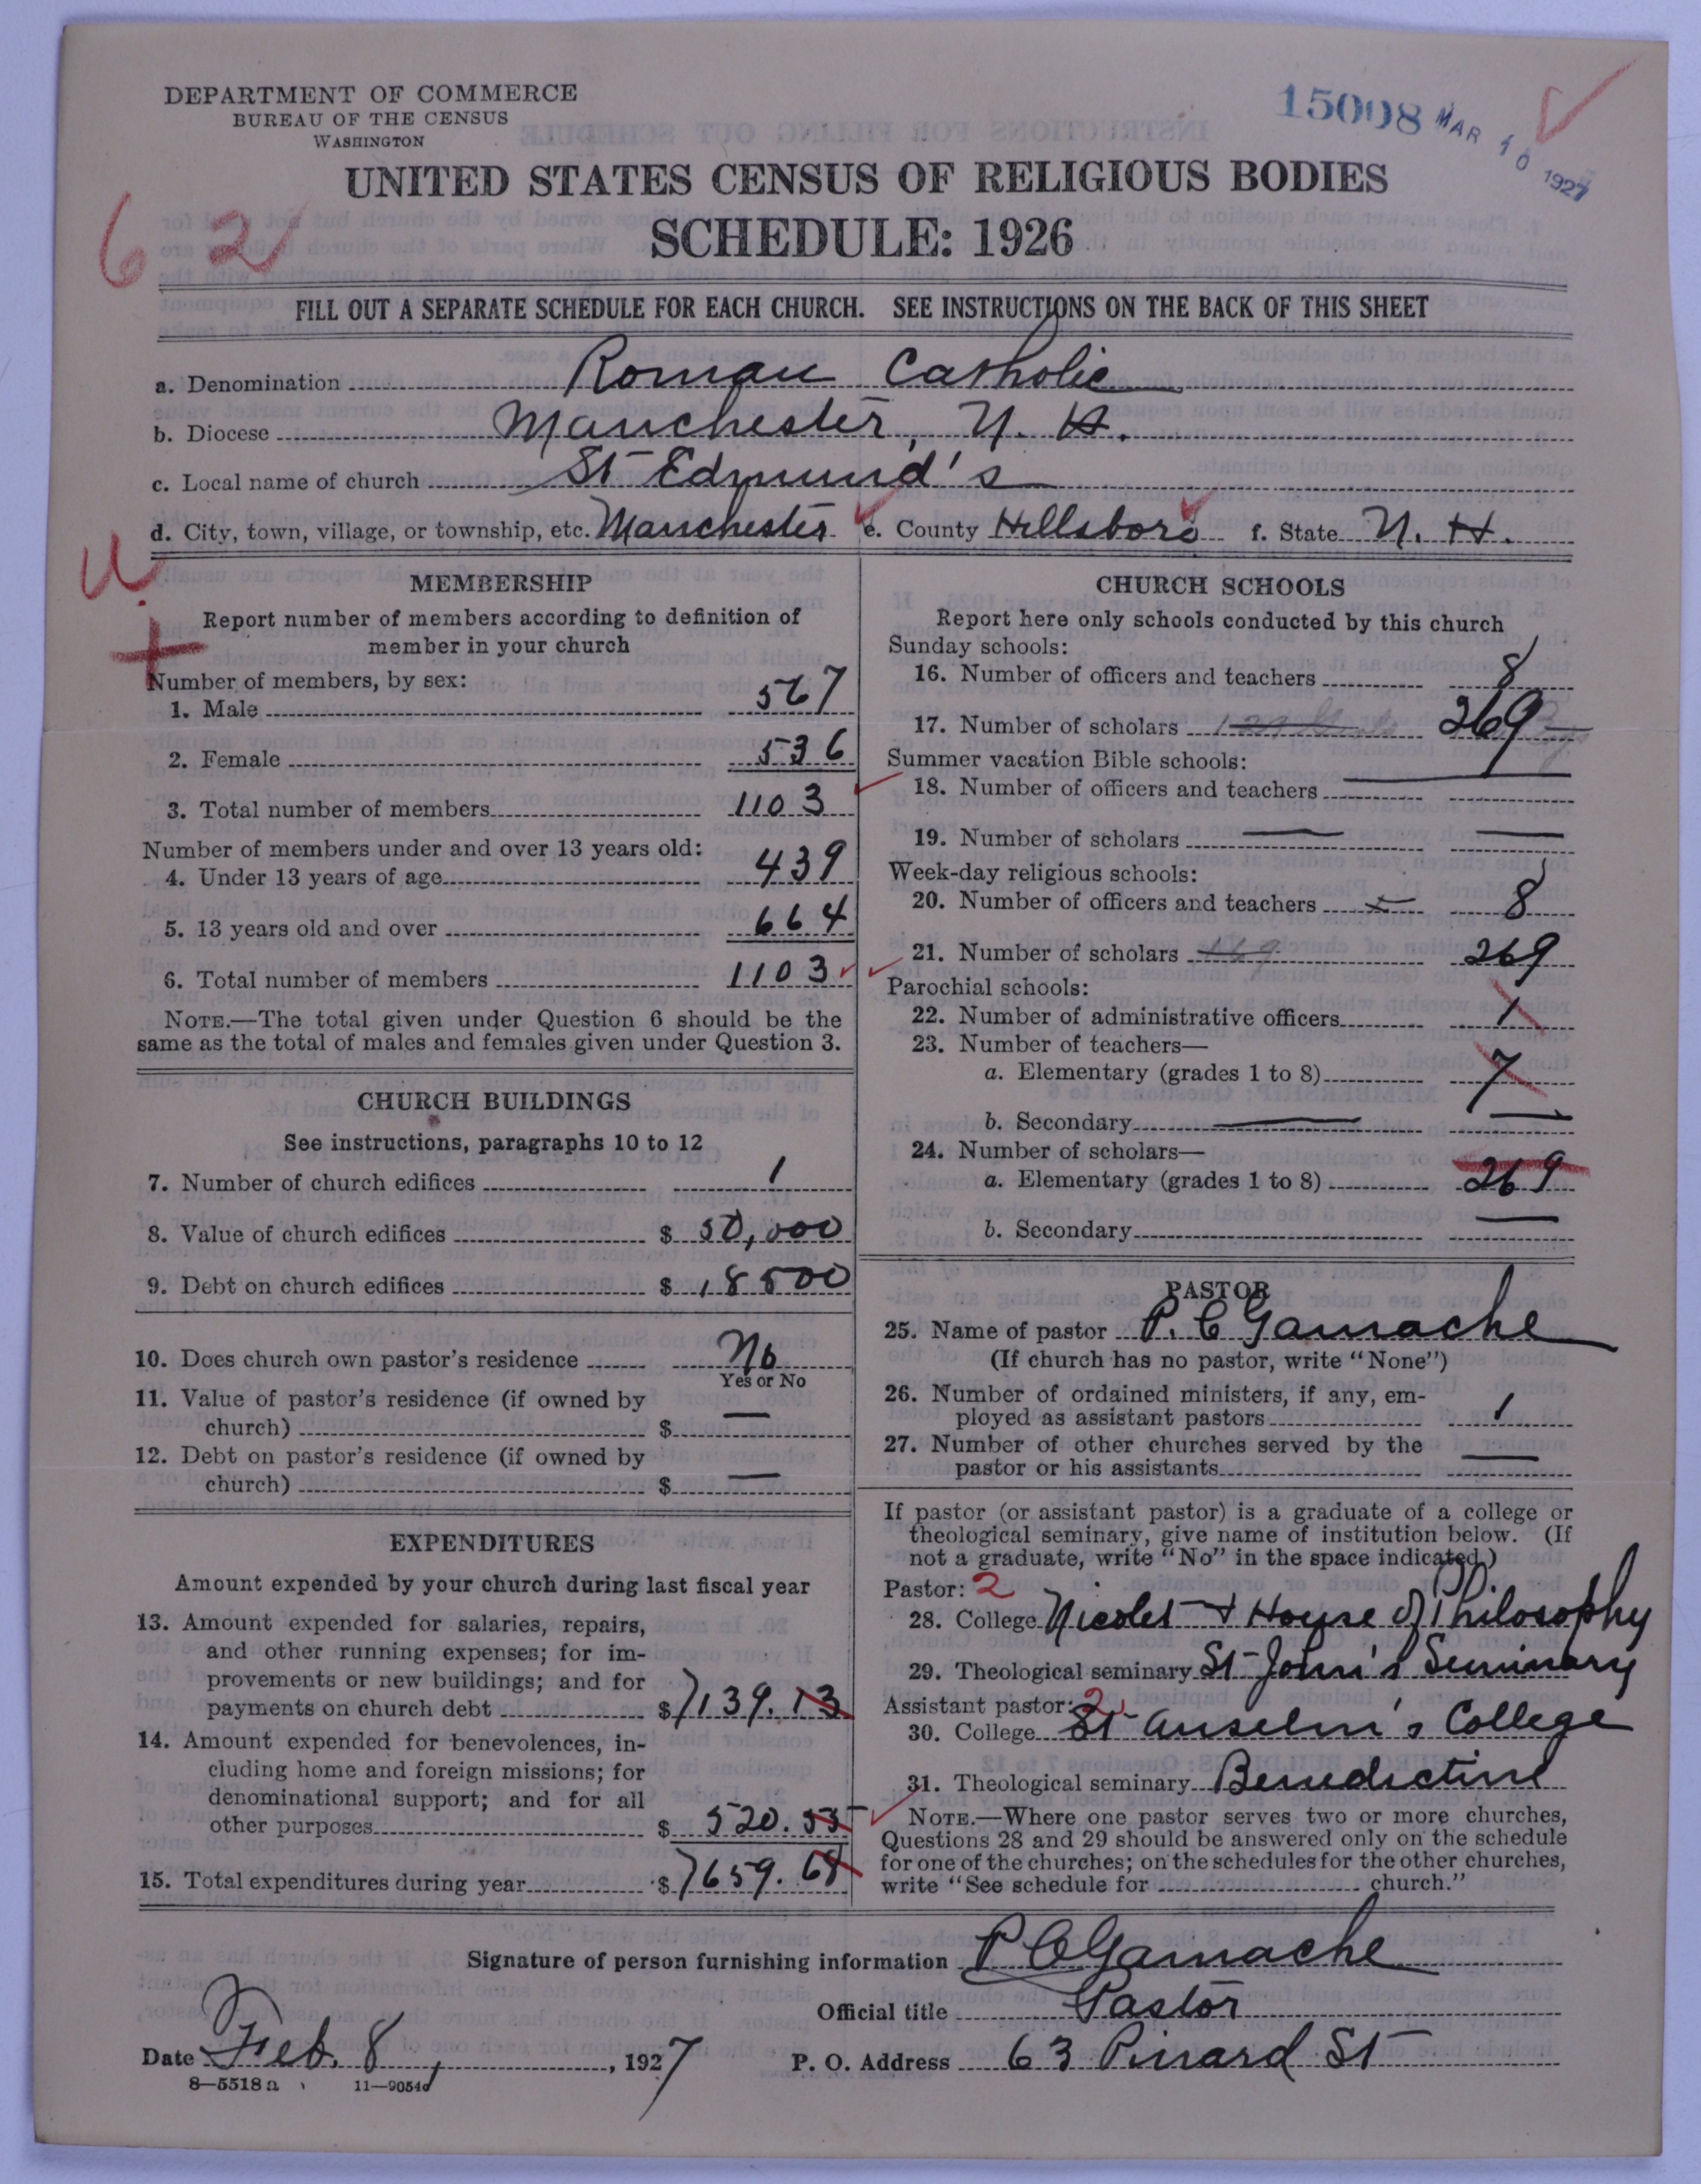 DEPARTMENT OF COMMERCE
BUREAU OF THE CENSUS
WASHINGTON
15008 MAR 10 1927
UNITED STATES CENSUS OF RELIGIOUS BODIES
SCHEDULE: 1926
62
FILL OUT A SEPARATE SCHEDULE FOR EACH CHURCH. SEE INSTRUCTIONS ON THE BACK OF THIS SHEET
a. Denomination Roman Catholic
b. Diocese Manchester, N. H.
c. Local name of church St Edmund's
d. City, town, village, or township, etc. Manchester e. County Hillsboro f. State N. H.
U
MEMBERSHIP
Report number of members according to definition of
member in your church
Number of members, by sex:
1. Male 567
2. Female 536
3. Total number of members 1103
Number of members under and over 13 years old:
4. Under 13 years of age 439
5. 13 years old and over 664
6. Total number of members 1103
NOTE.—The total given under Question 6 should be the
same as the total of males and females given under Question 3.
CHURCH BUILDINGS
See instructions, paragraphs 10 to 12
7. Number of church edifices 1
8. Value of church edifices $ 50,000
9. Debt on church edifices $ 18500
10. Does church own pastor's residence No
Yes or No
11. Value of pastor's residence (if owned by
church) $ —
12. Debt on pastor's residence (if owned by
church) $ —
EXPENDITURES
Amount expended by your church during last fiscal year
13. Amount expended for salaries, repairs,
and other running expenses; for im-
provements or new buildings; and for
payments on church debt $ 7139.13
14. Amount expended for benevolences, in-
cluding home and foreign missions; for
denominational support; and for all
other purposes $ 520.55
15. Total expenditures during year $ 7659.68
CHURCH SCHOOLS
Report here only schools conducted by this church
Sunday schools:
16. Number of officers and teachers 8
17. Number of scholars 269
Summer vacation Bible schools:
18. Number of officers and teachers —
19. Number of scholars — —
Week-day religious schools:
20. Number of officers and teachers 8
21. Number of scholars 169 269
Parochial schools:
22. Number of administrative officers 1
23. Number of teachers—
a. Elementary (grades 1 to 8) 7
b. Secondary — —
24. Number of scholars—
a. Elementary (grades 1 to 8) 269
b. Secondary —
PASTOR
25. Name of pastor P. C Gamache
(If church has no pastor, write "None")
26. Number of ordained ministers, if any, em-
ployed as assistant pastors 1
27. Number of other churches served by the
pastor or his assistants —
If pastor (or assistant pastor) is a graduate of a college or
theological seminary, give name of institution below. (If
not a graduate, write "No" in the space indicated.)
Pastor: 2
28. College Nicolet + House of Philosophy
29. Theological seminary St John's Seminary
Assistant pastor: 2
30. College St Anselm's College
31. Theological seminary Benedictine
NOTE.—Where one pastor serves two or more churches,
Questions 28 and 29 should be answered only on the schedule
for one of the churches; on the schedules for the other churches,
write "See schedule for church."
Signature of person furnishing information P C Gamache
Official title Pastor
Date Feb. 8, 1927 P. O. Address 63 Pinard St
8—5518 a 11—9054